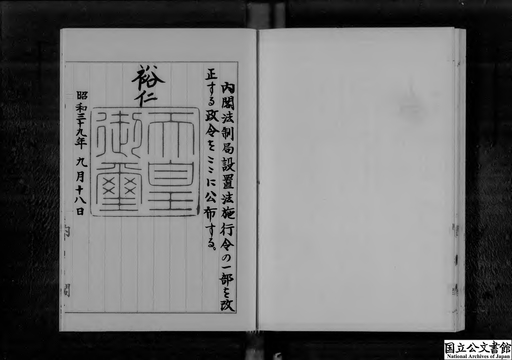 内閣法制局設置法施行令の一部を改
正する政令をここに公布する。
裕仁
天皇
御璽
昭和三十九年九月十八日
内閣
国立公文書館
National Archives of Japan